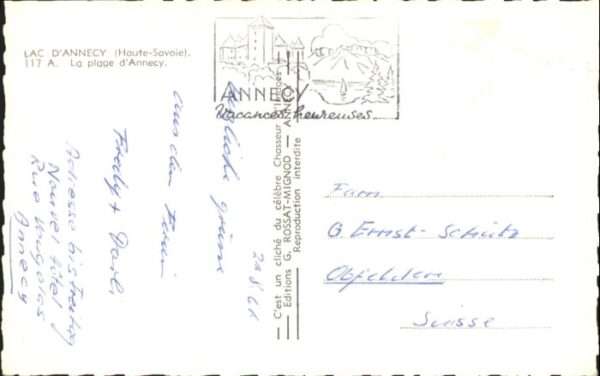 LAC D'ANNECY (Haute-Savoie).
117 A. La plage d'Annecy.
ANNECY
Vacances heureuses
— C'est un cliché du célèbre Chasseur d'Images —
— Editions G. ROSSAT-MIGNOD — ANNECY —
Reproduction interdite
22.8.61
Grüsse
aus den Ferien
Fredy +
Adresse bis Freitag
Nouvel Hôtel
Rue Vaugelas
Annecy
Fam.
G. Ernst-Schütz
Obfelden
Suisse